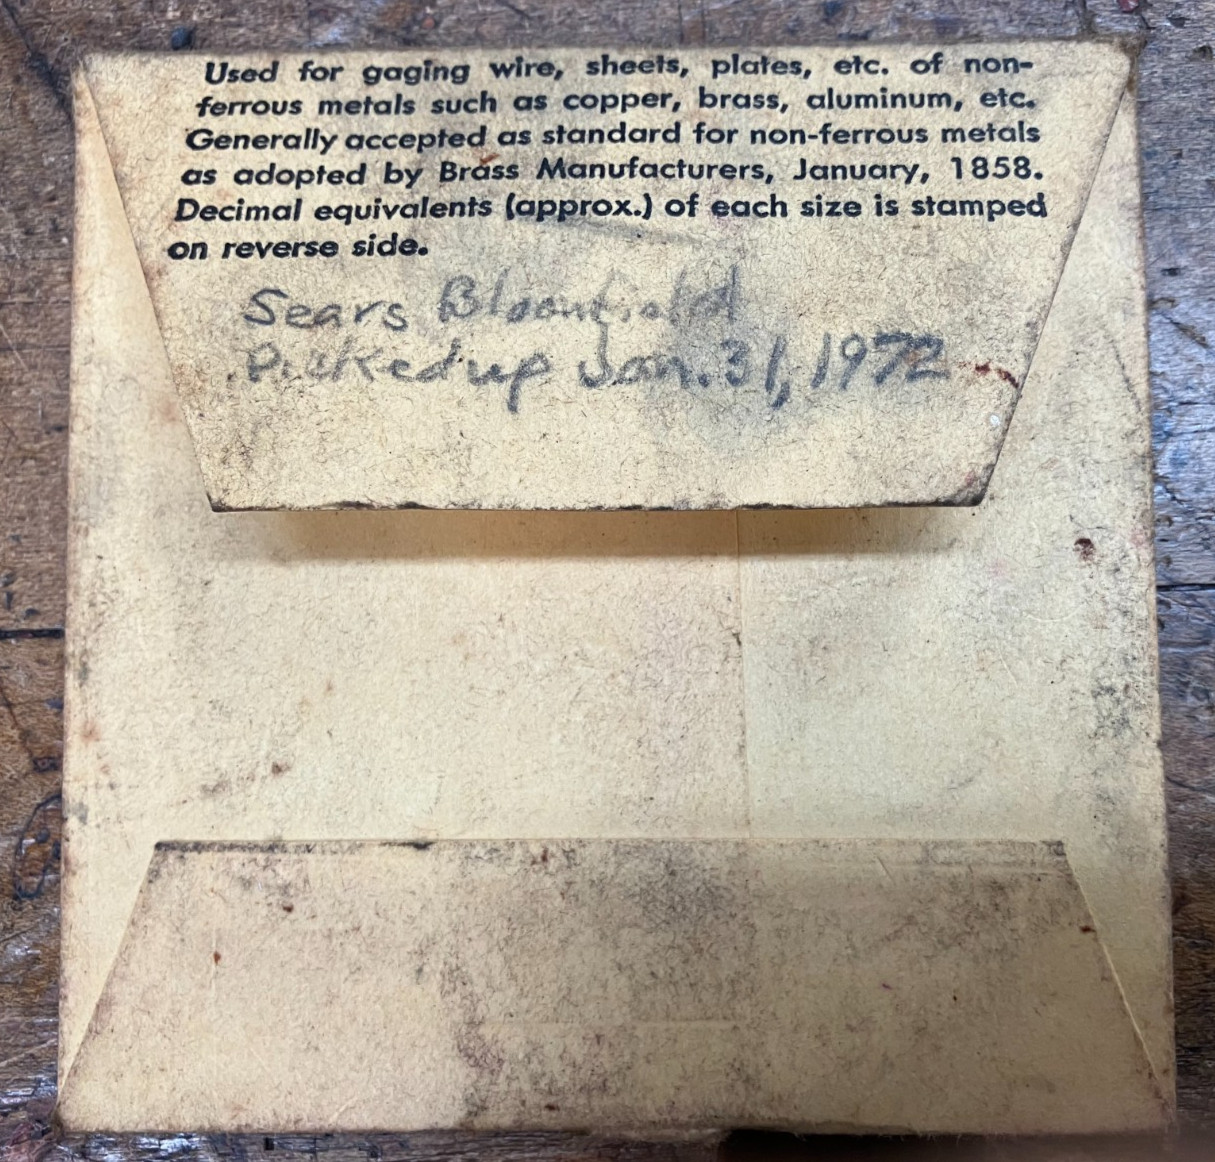 Used for gaging wire, sheets, plates, etc. of non-
ferrous metals such as copper, brass, aluminum, etc.
Generally accepted as standard for non-ferrous metals
as adopted by Brass Manufacturers, January, 1858.
Decimal equivalents (approx.) of each size is stamped
on reverse side.
Sears Bloomfield
Picked up Jan. 31, 1972